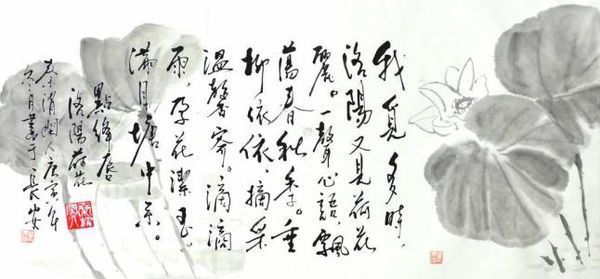 我覓多時，
洛陽又見荷花
麗。一聲心語，飄
蕩春秋季。垂
柳依依，摘采
溫馨寄。滴滴
雨，孕花潔玉。
滿目塘中。
點絳唇
洛陽荷花
人庚寅年
六月書于長安